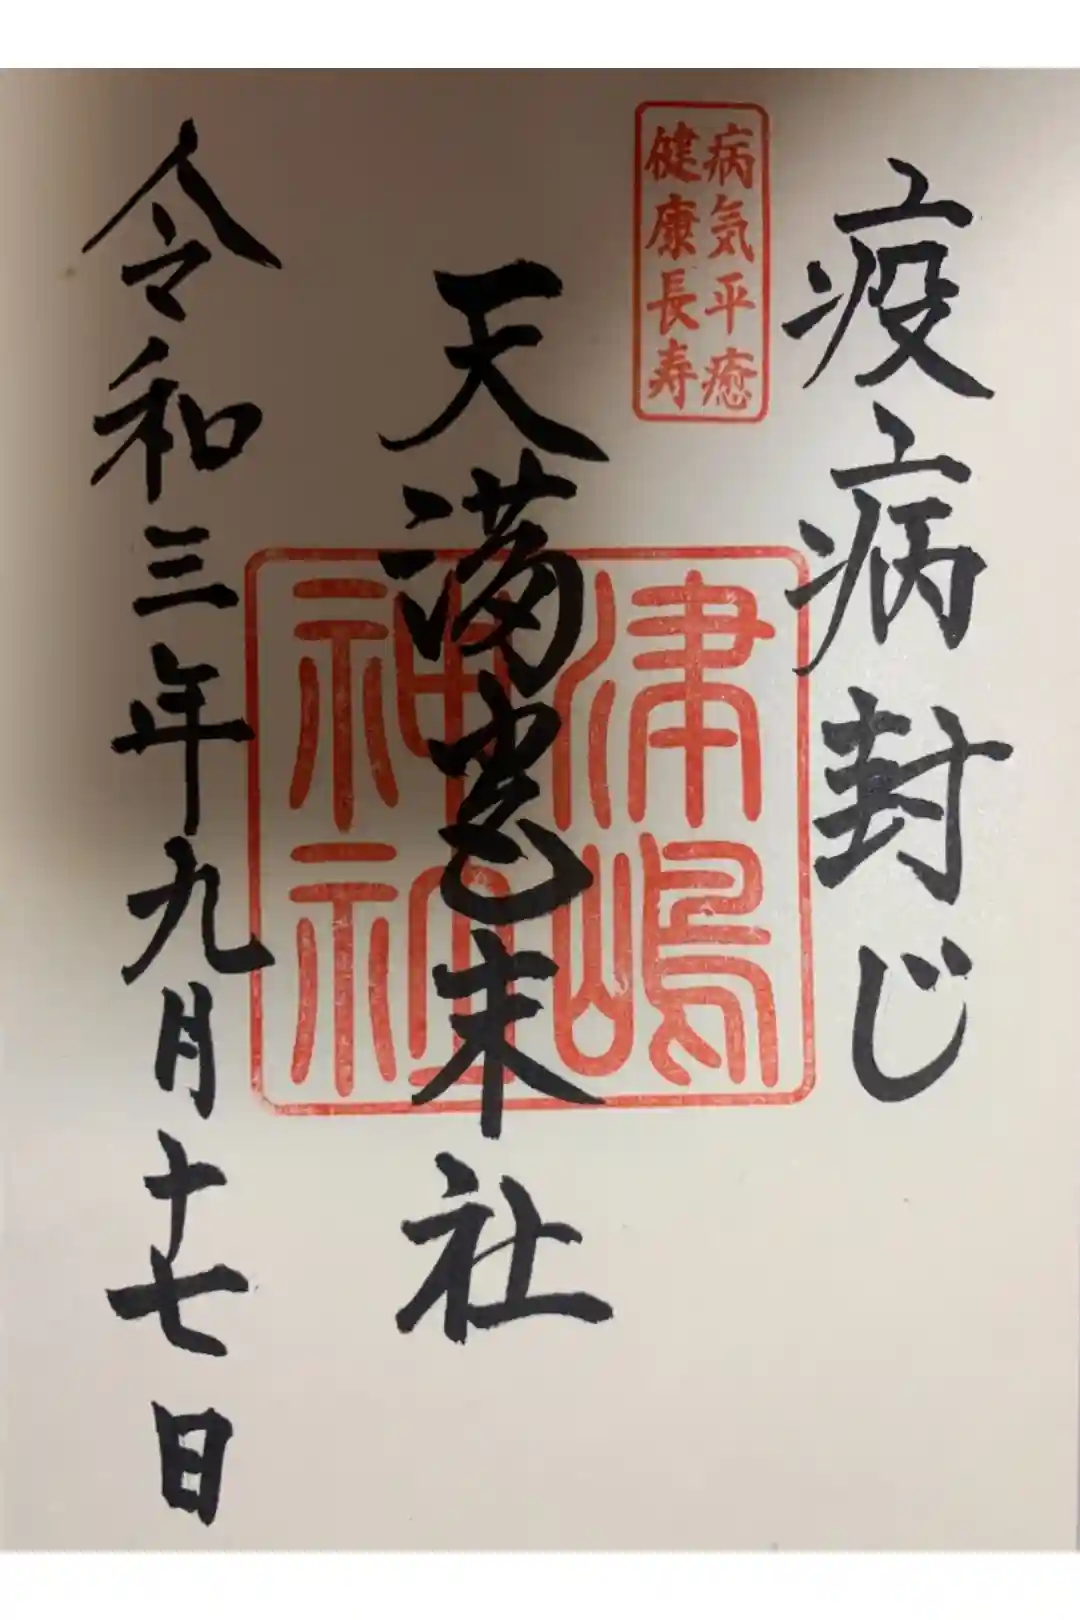 疫病封じ
病気平癒
健康長寿
天満宮末社
津嶋
神社
令和三年九月十七日